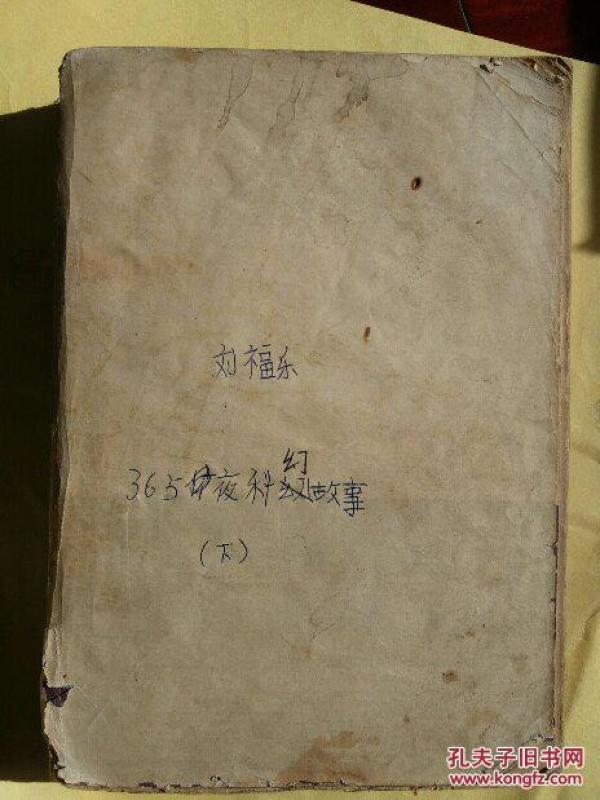 刘福东
365夜科幻故事
(下)
孔夫子旧书网
www.kongfz.com